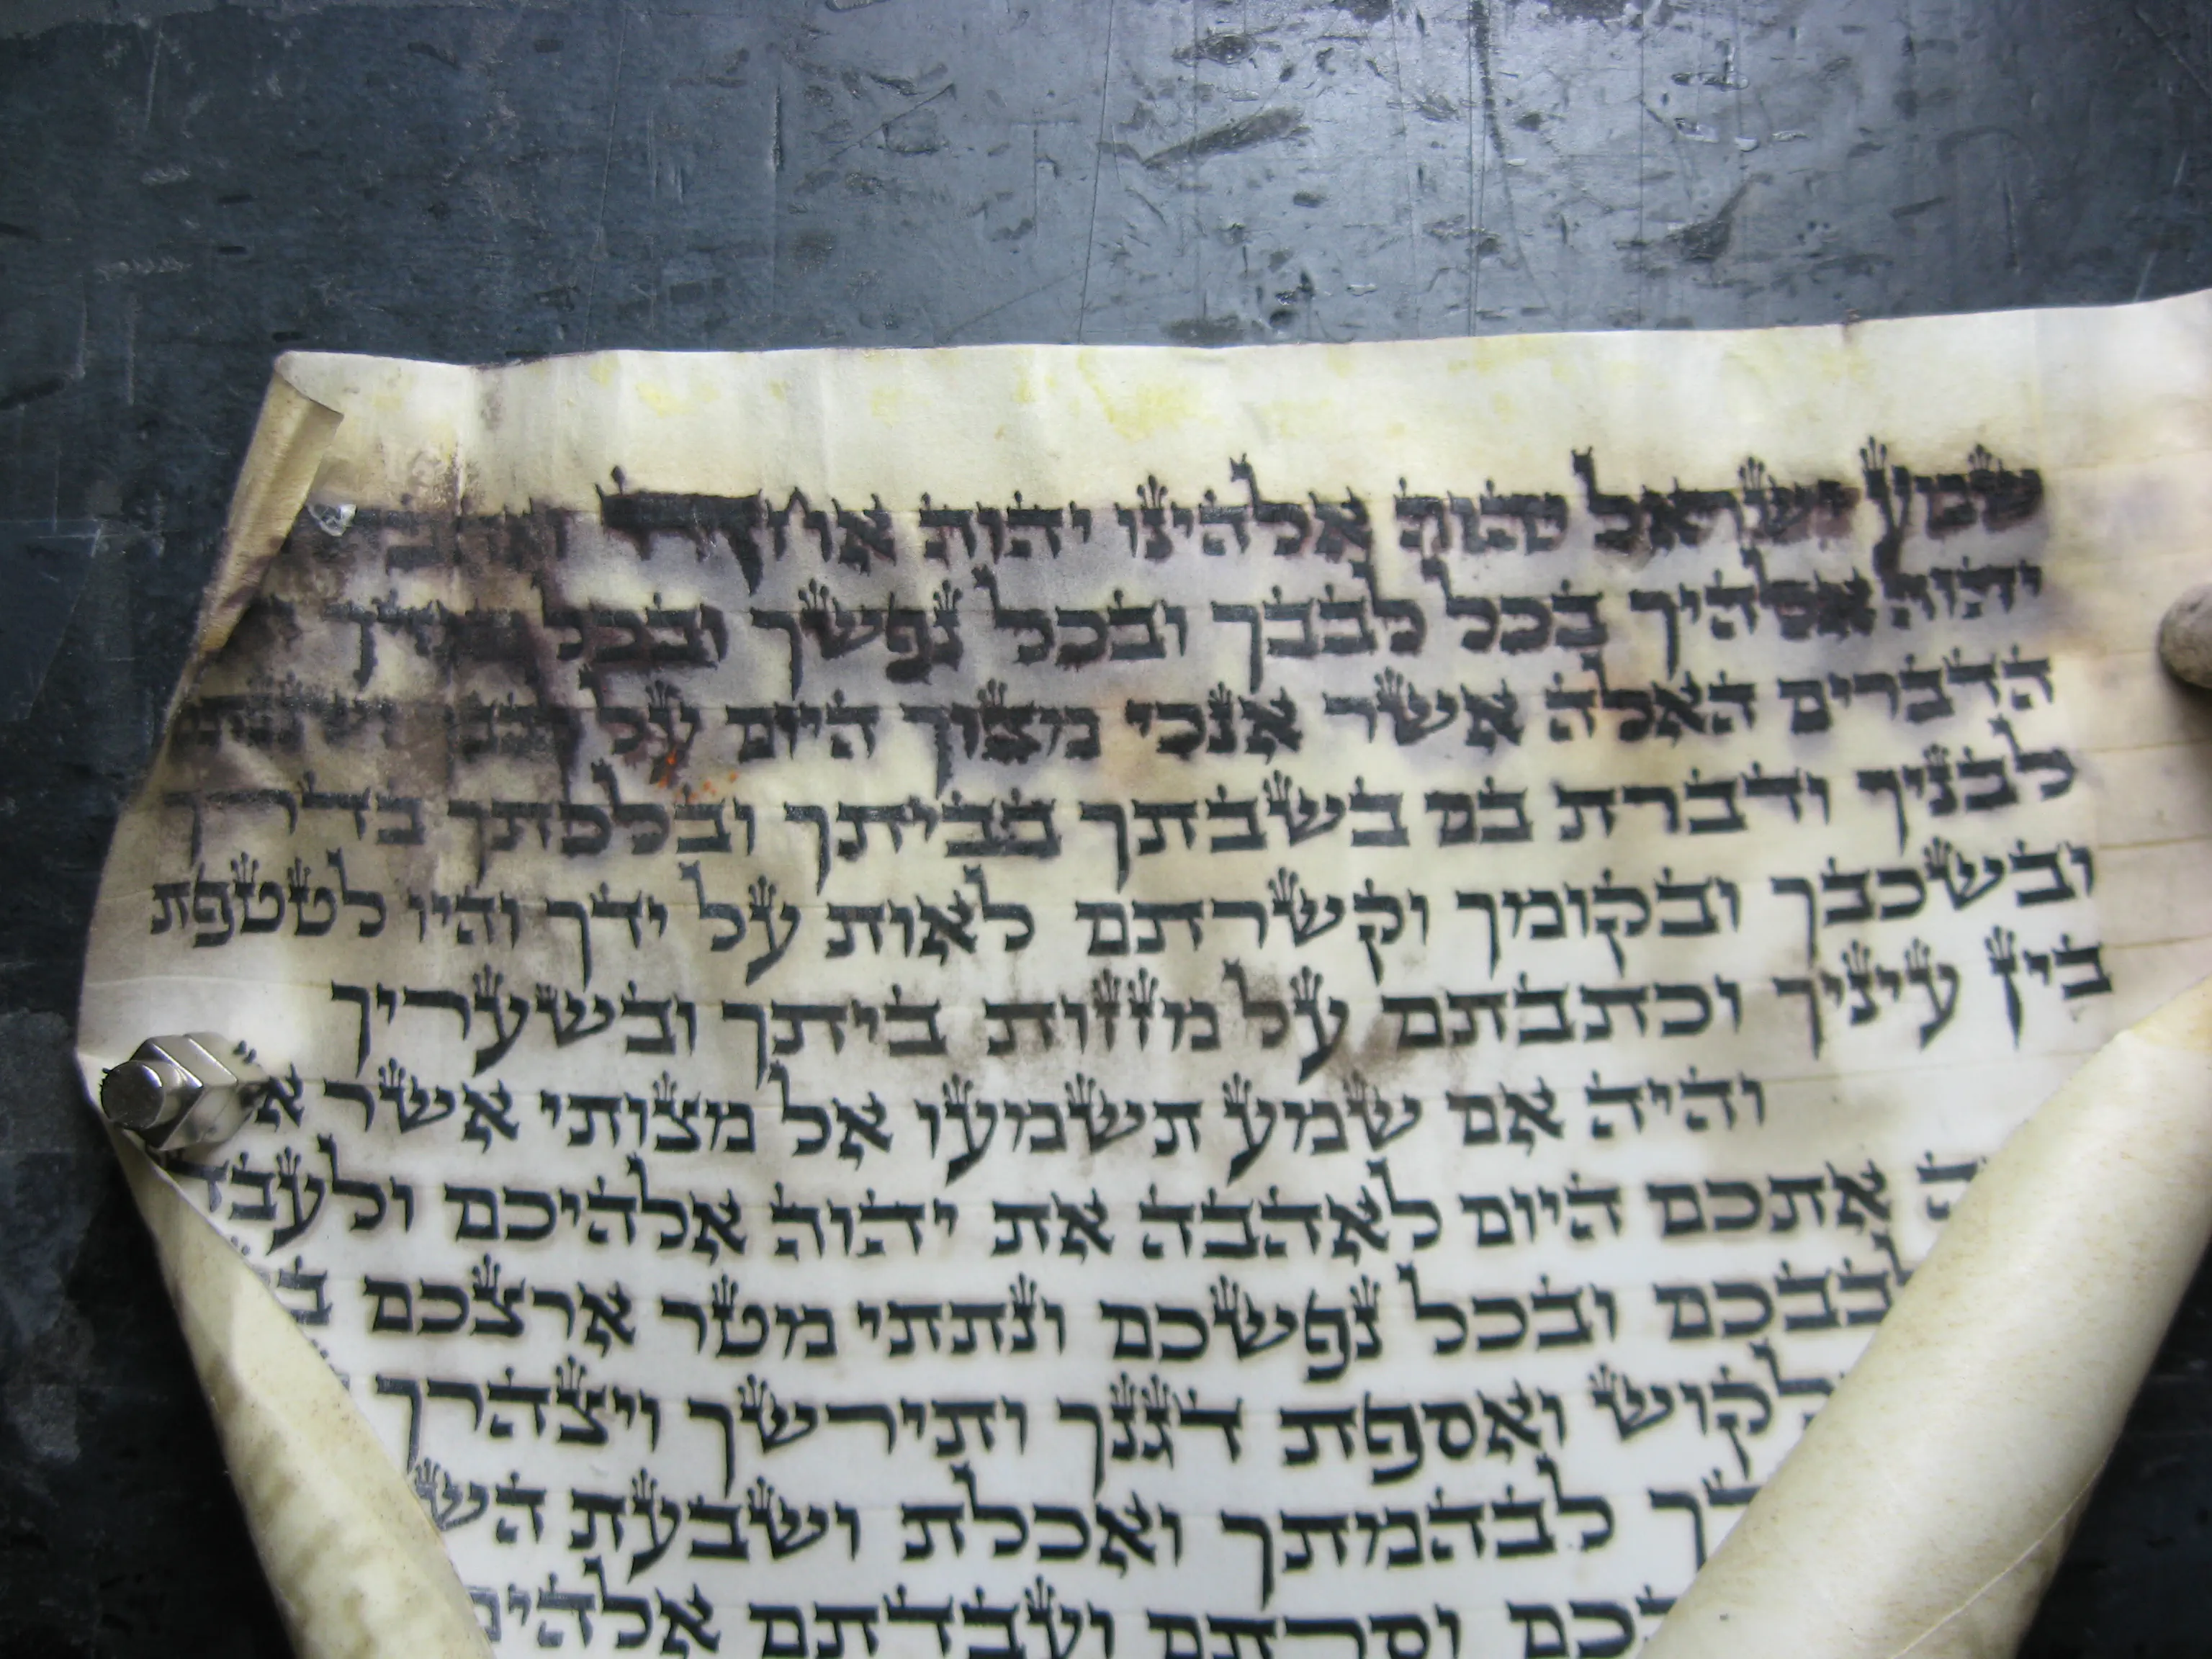 שמע ישראל יהוה אלהינו יהוה אחד
יהוה אלהיך בכל לבבך ובכל נפשך ובכל מאדך
הדברים האלה אשר אנכי מצוך היום על לבבך ושננתם
לבניך ודברת בם בשבתך בביתך ובלכתך בדרך
ובשכבך ובקומך וקשרתם לאות על ידך והיו לטטפת
בין עיניך וכתבתם על מזזות ביתך ובשעריך
והיה אם שמע תשמעו אל מצותי אשר
אתכם היום לאהבה את יהוה אלהיכם
לבבכם ובכל נפשכם ונתתי מטר ארצכם
ואספת דגנך ותירשך ויצהרך
לבהמתך ואכלת ושבעת
וסרתם ועבדתם